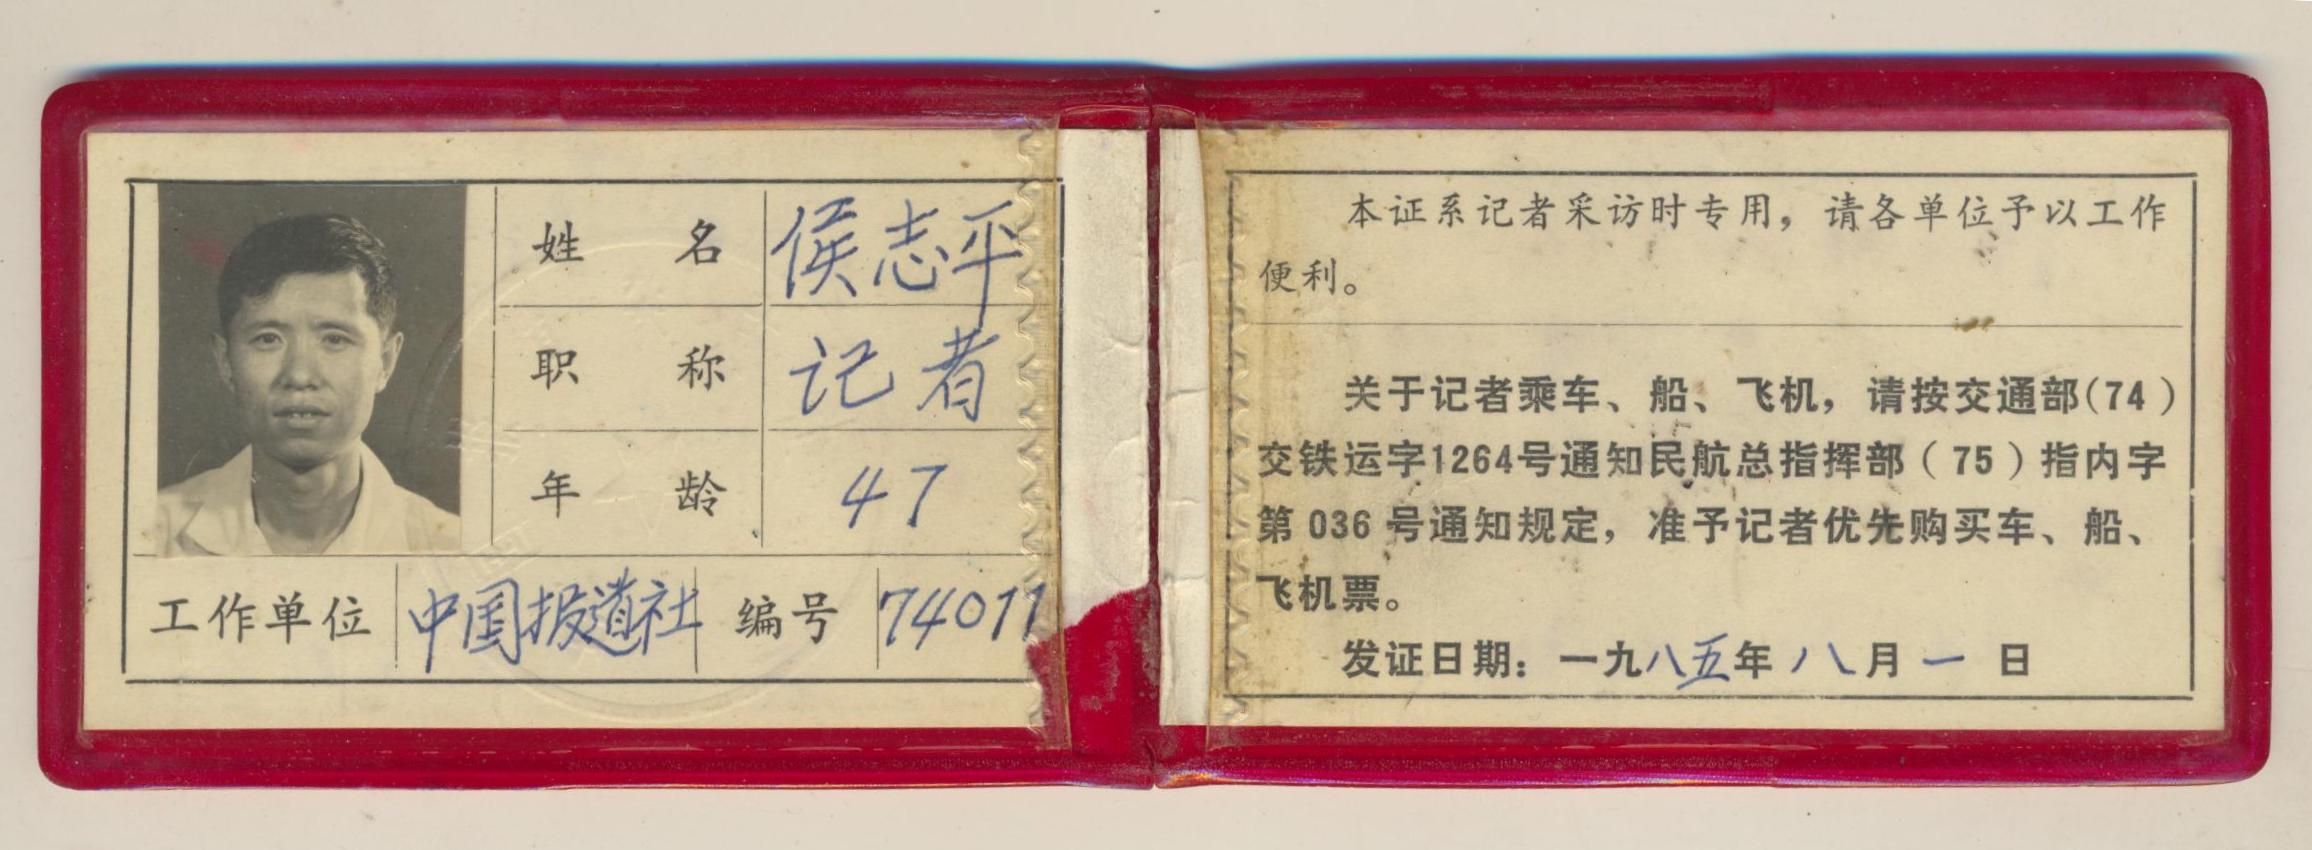 姓名 侯志平
职称 记者
年龄 47
工作单位 中国报道社 编号 74011
本证系记者采访时专用，请各单位予以工作
便利。
关于记者乘车、船、飞机，请按交通部(74)
交铁运字1264号通知民航总指挥部(75)指内字
第036号通知规定，准予记者优先购买车、船、
飞机票。
发证日期：一九八五年八月一日